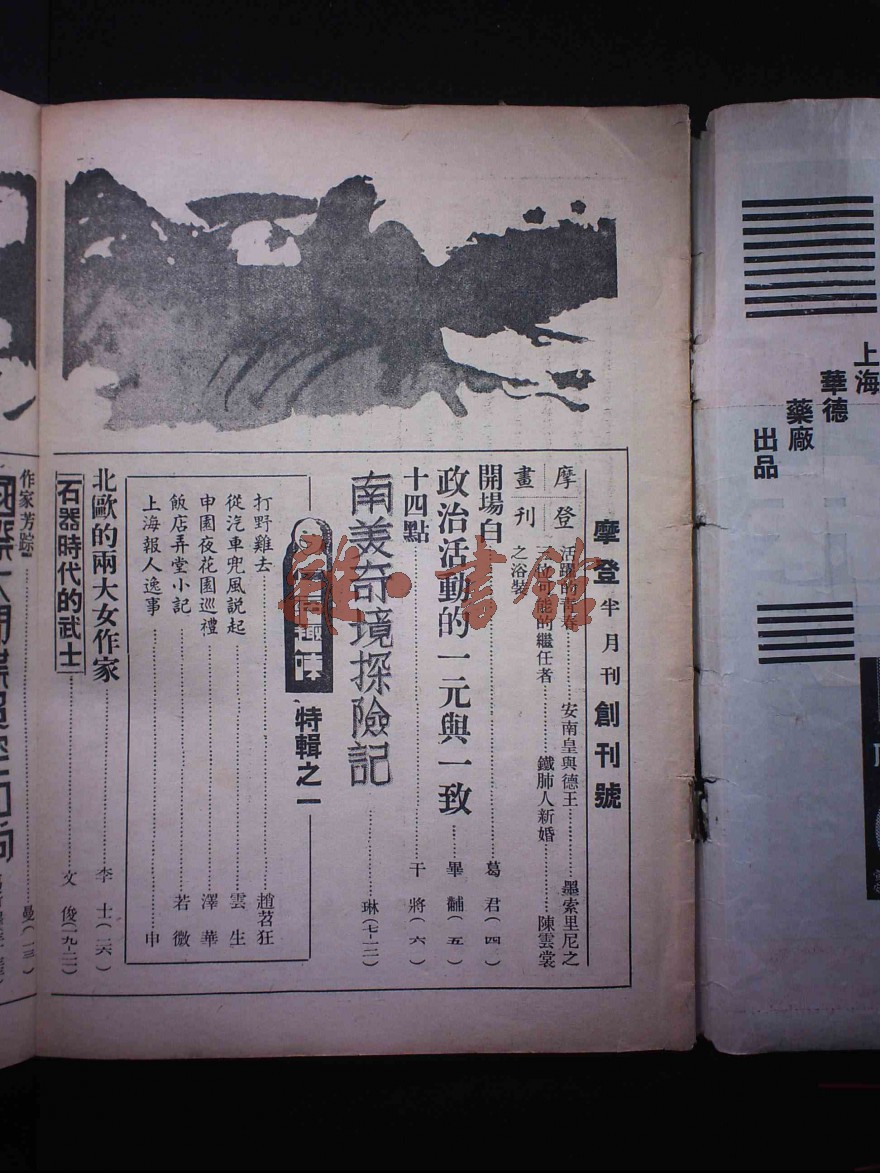 上海
華德
藥廠
出品
摩登半月刊創刊號
摩登
畫刊
活躍的青春………安南皇與德王………墨索里尼之
三位可能的繼任者………鐵肺人新婚………陳雲裳
之浴裝
開場白………葛君(四)
政治活動的一元與一致………畢黼(五)
十四點………干將(六)
南美奇境探險記………琳(七-一二)
特輯之一
打野雞去………趙苕狂
從汽車兜風說起………雲生
申園夜花園巡禮………澤華
飯店弄堂小記………若微
上海報人逸事………申
北歐的兩大女作家………李士(二六)
石器時代的武士………文俊(一九-二一)
作家芳踪………曼(一三)
雜·書館